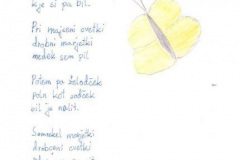 kje si pa bil.
Pri majceni cvetki
drobni marjetki
medek sem pil.
Potem pa želodček
poln kot sodček
bil je nalit.
marjetki
drobceni cvetki